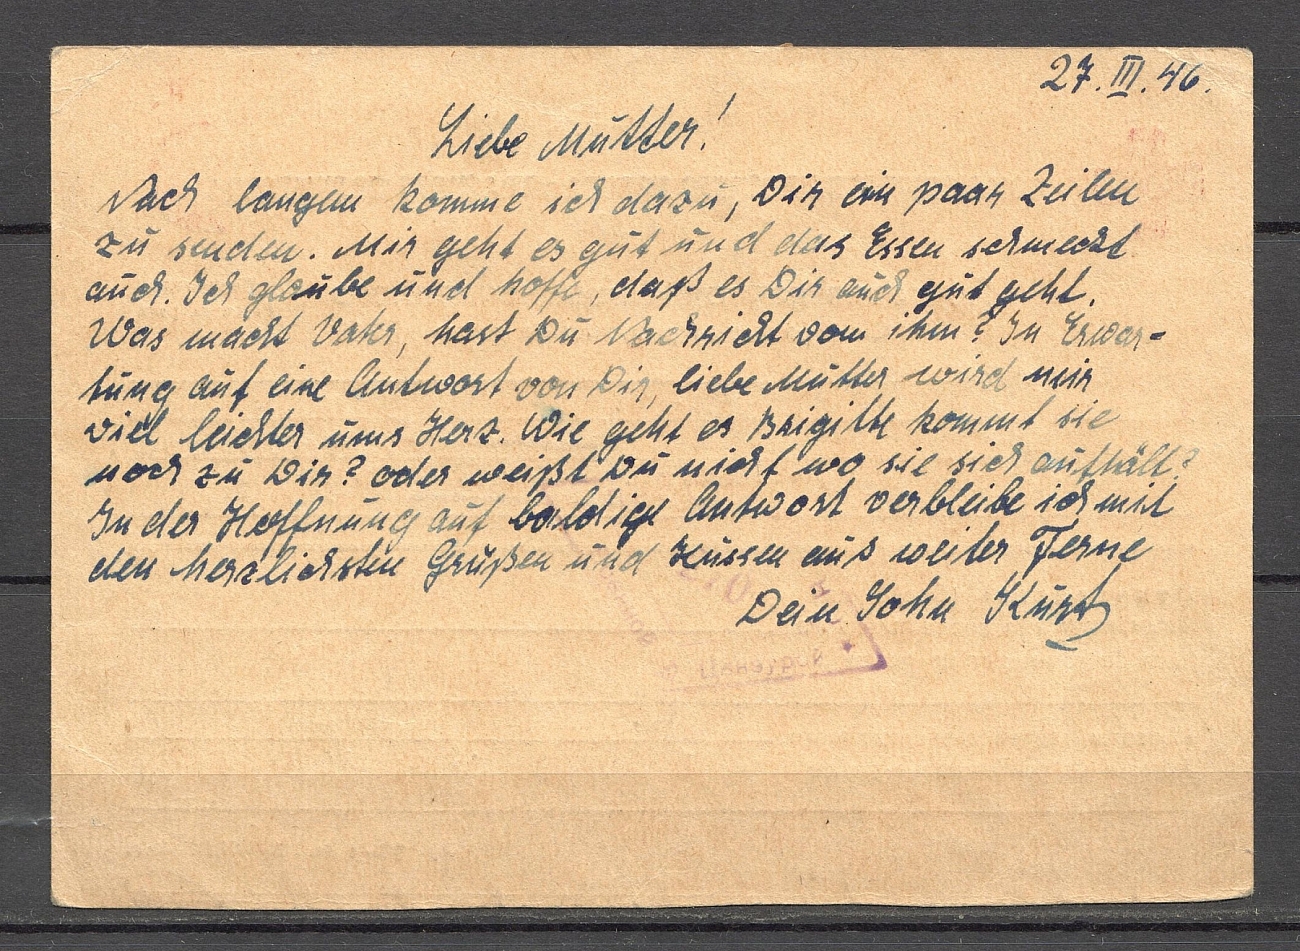 27. III. 46.
Liebe Mutter!
Nach langem komme ich dazu, Dir ein paar Zeilen
zu senden. Mir geht es gut und das Essen schmeckt
auch. Ich glaube und hoffe, daß es Dir auch gut geht.
Was macht Vater, hast Du Nachricht vom ihm? In Erwar-
tung auf eine Antwort von Dir, liebe Mutter wird mir
viel leichter ums Herz. Wie geht es Brigitte kommt sie
noch zu Dir? oder weißt Du nicht wo sie sich aufhält?
In der Hoffnung auf baldige Antwort verbleibe ich mit
den herzlichsten Grußen und Kussen aus weiter Ferne
Dein Sohn Kurt